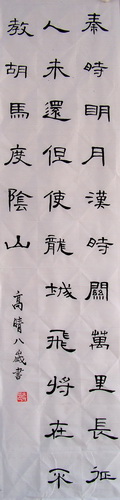 秦時明月漢時關萬里長征
人未還但使龍城飛將在不
教胡馬度陰山
高晴八歲書